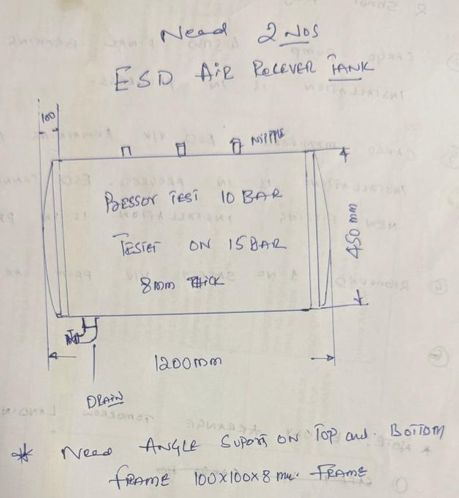 Need 2 NOS
ESD AIR RECEVER TANK
100
NIPPLE
PRESSOR TEST 10 BAR
TESTET ON 15 BAR
8mm THICK
450 mm
1200mm
DRAIN
* Need ANGLE SUPORT ON TOP and BOTTOM
FRAME 100x100x8 mm FRAME